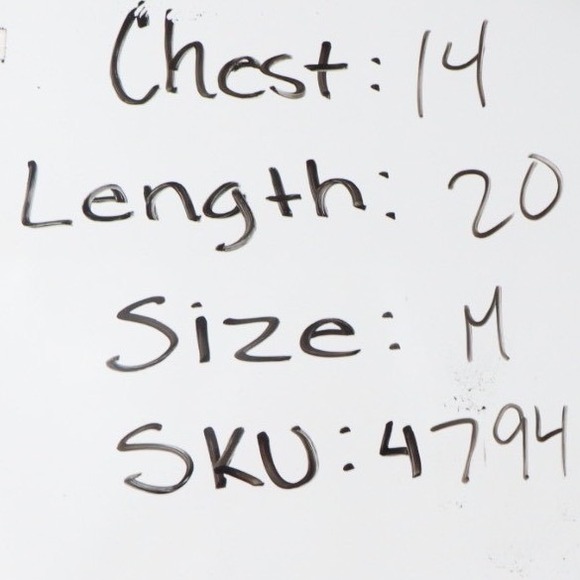 Chest: 14
Length: 20
Size: M
SKU: 4794